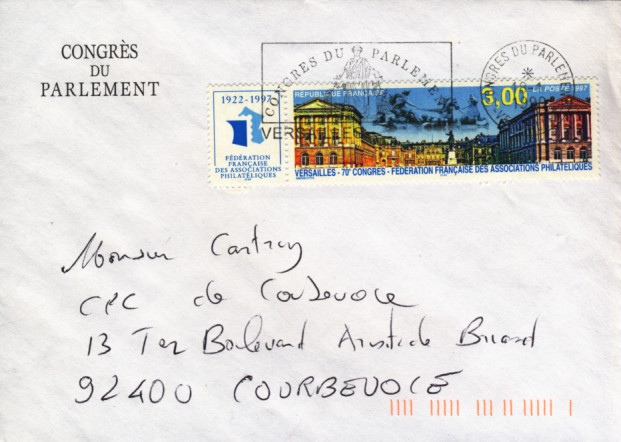 CONGRÈS
DU
PARLEMENT
CONGRES DU PARLEME
VERSAILLE
CONGRES DU PARLEN
1922-1997
FÉDÉRATION
FRANÇAISE
DES ASSOCIATIONS
PHILATÉLIQUES
REPUBLIQUE FRANÇAISE
3,00
LA POSTE 1997
VERSAILLES - 70e CONGRES - FEDERATION FRANÇAISE DES ASSOCIATIONS PHILATELIQUES
Monsieur
CPC de
13 Ter Boulevard Aristide Briand
92400 COURBEVOIE